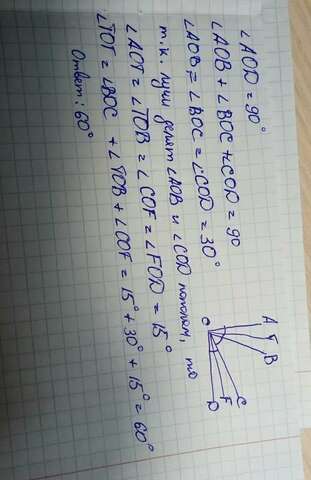 ∠AOD = 90°
∠AOB + ∠BOC + ∠COD = 90
∠AOB = ∠BOC = ∠COD = 30°
т.к. лучи делят ∠AOB и ∠COD пополам, то
∠AOT = ∠TOB = ∠COF = ∠FOD = 15°
∠TOF = ∠BOC + ∠TOB + ∠COF = 15° + 30° + 15° = 60°
Ответ: 60°
A
T
B
O
C
F
D